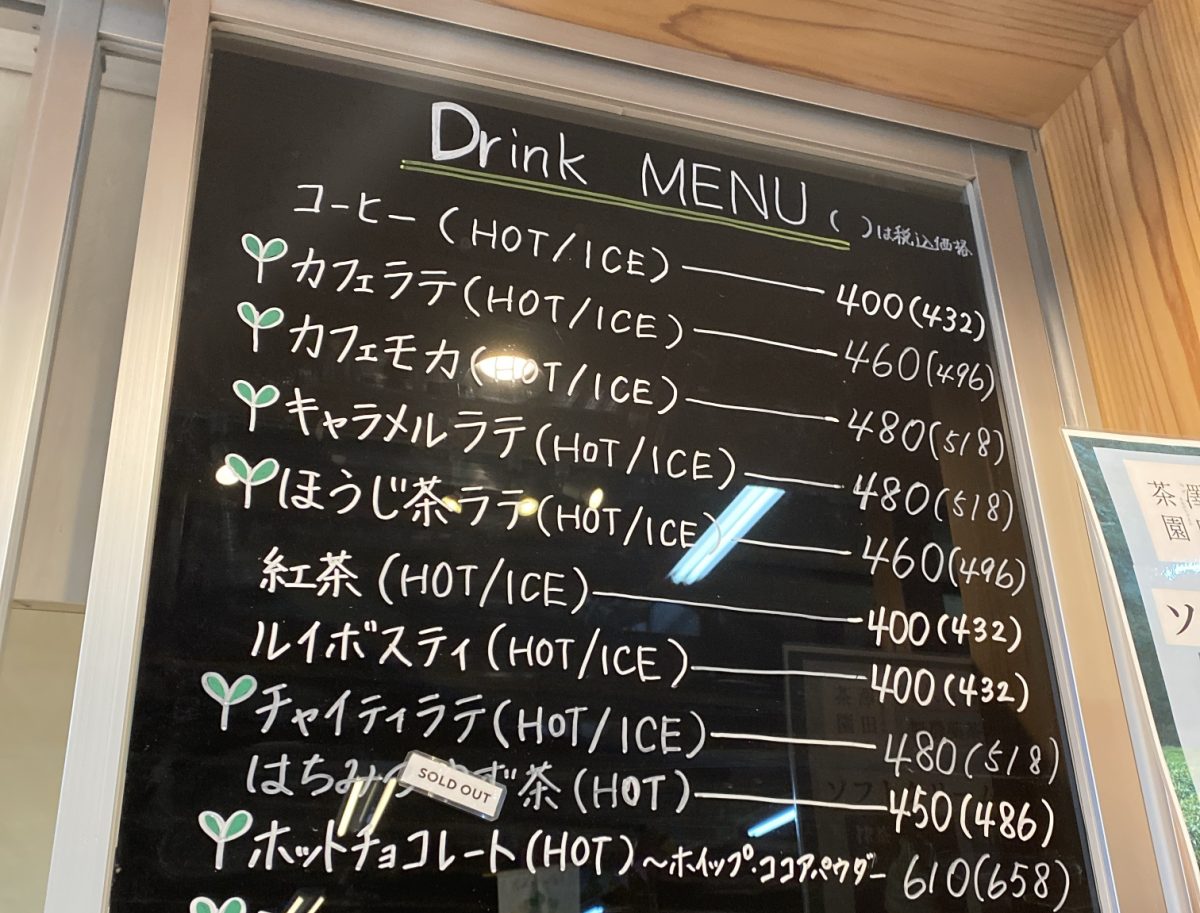 Drink MENU ( )は税込価格
コーヒー(HOT/ICE) 400(432)
カフェラテ(HOT/ICE) 460(496)
カフェモカ(HOT/ICE) 480(518)
キャラメルラテ(HOT/ICE) 480(518)
ほうじ茶ラテ(HOT/ICE) 460(496)
紅茶(HOT/ICE) 400(432)
ルイボスティ(HOT/ICE) 400(432)
チャイティラテ(HOT/ICE) 480(518)
はちみ ず茶(HOT) 450(486)
SOLD OUT
ホットチョコレート(HOT)~ホイップ・ココアパウダー 610(658)
茶園
澤
ソ